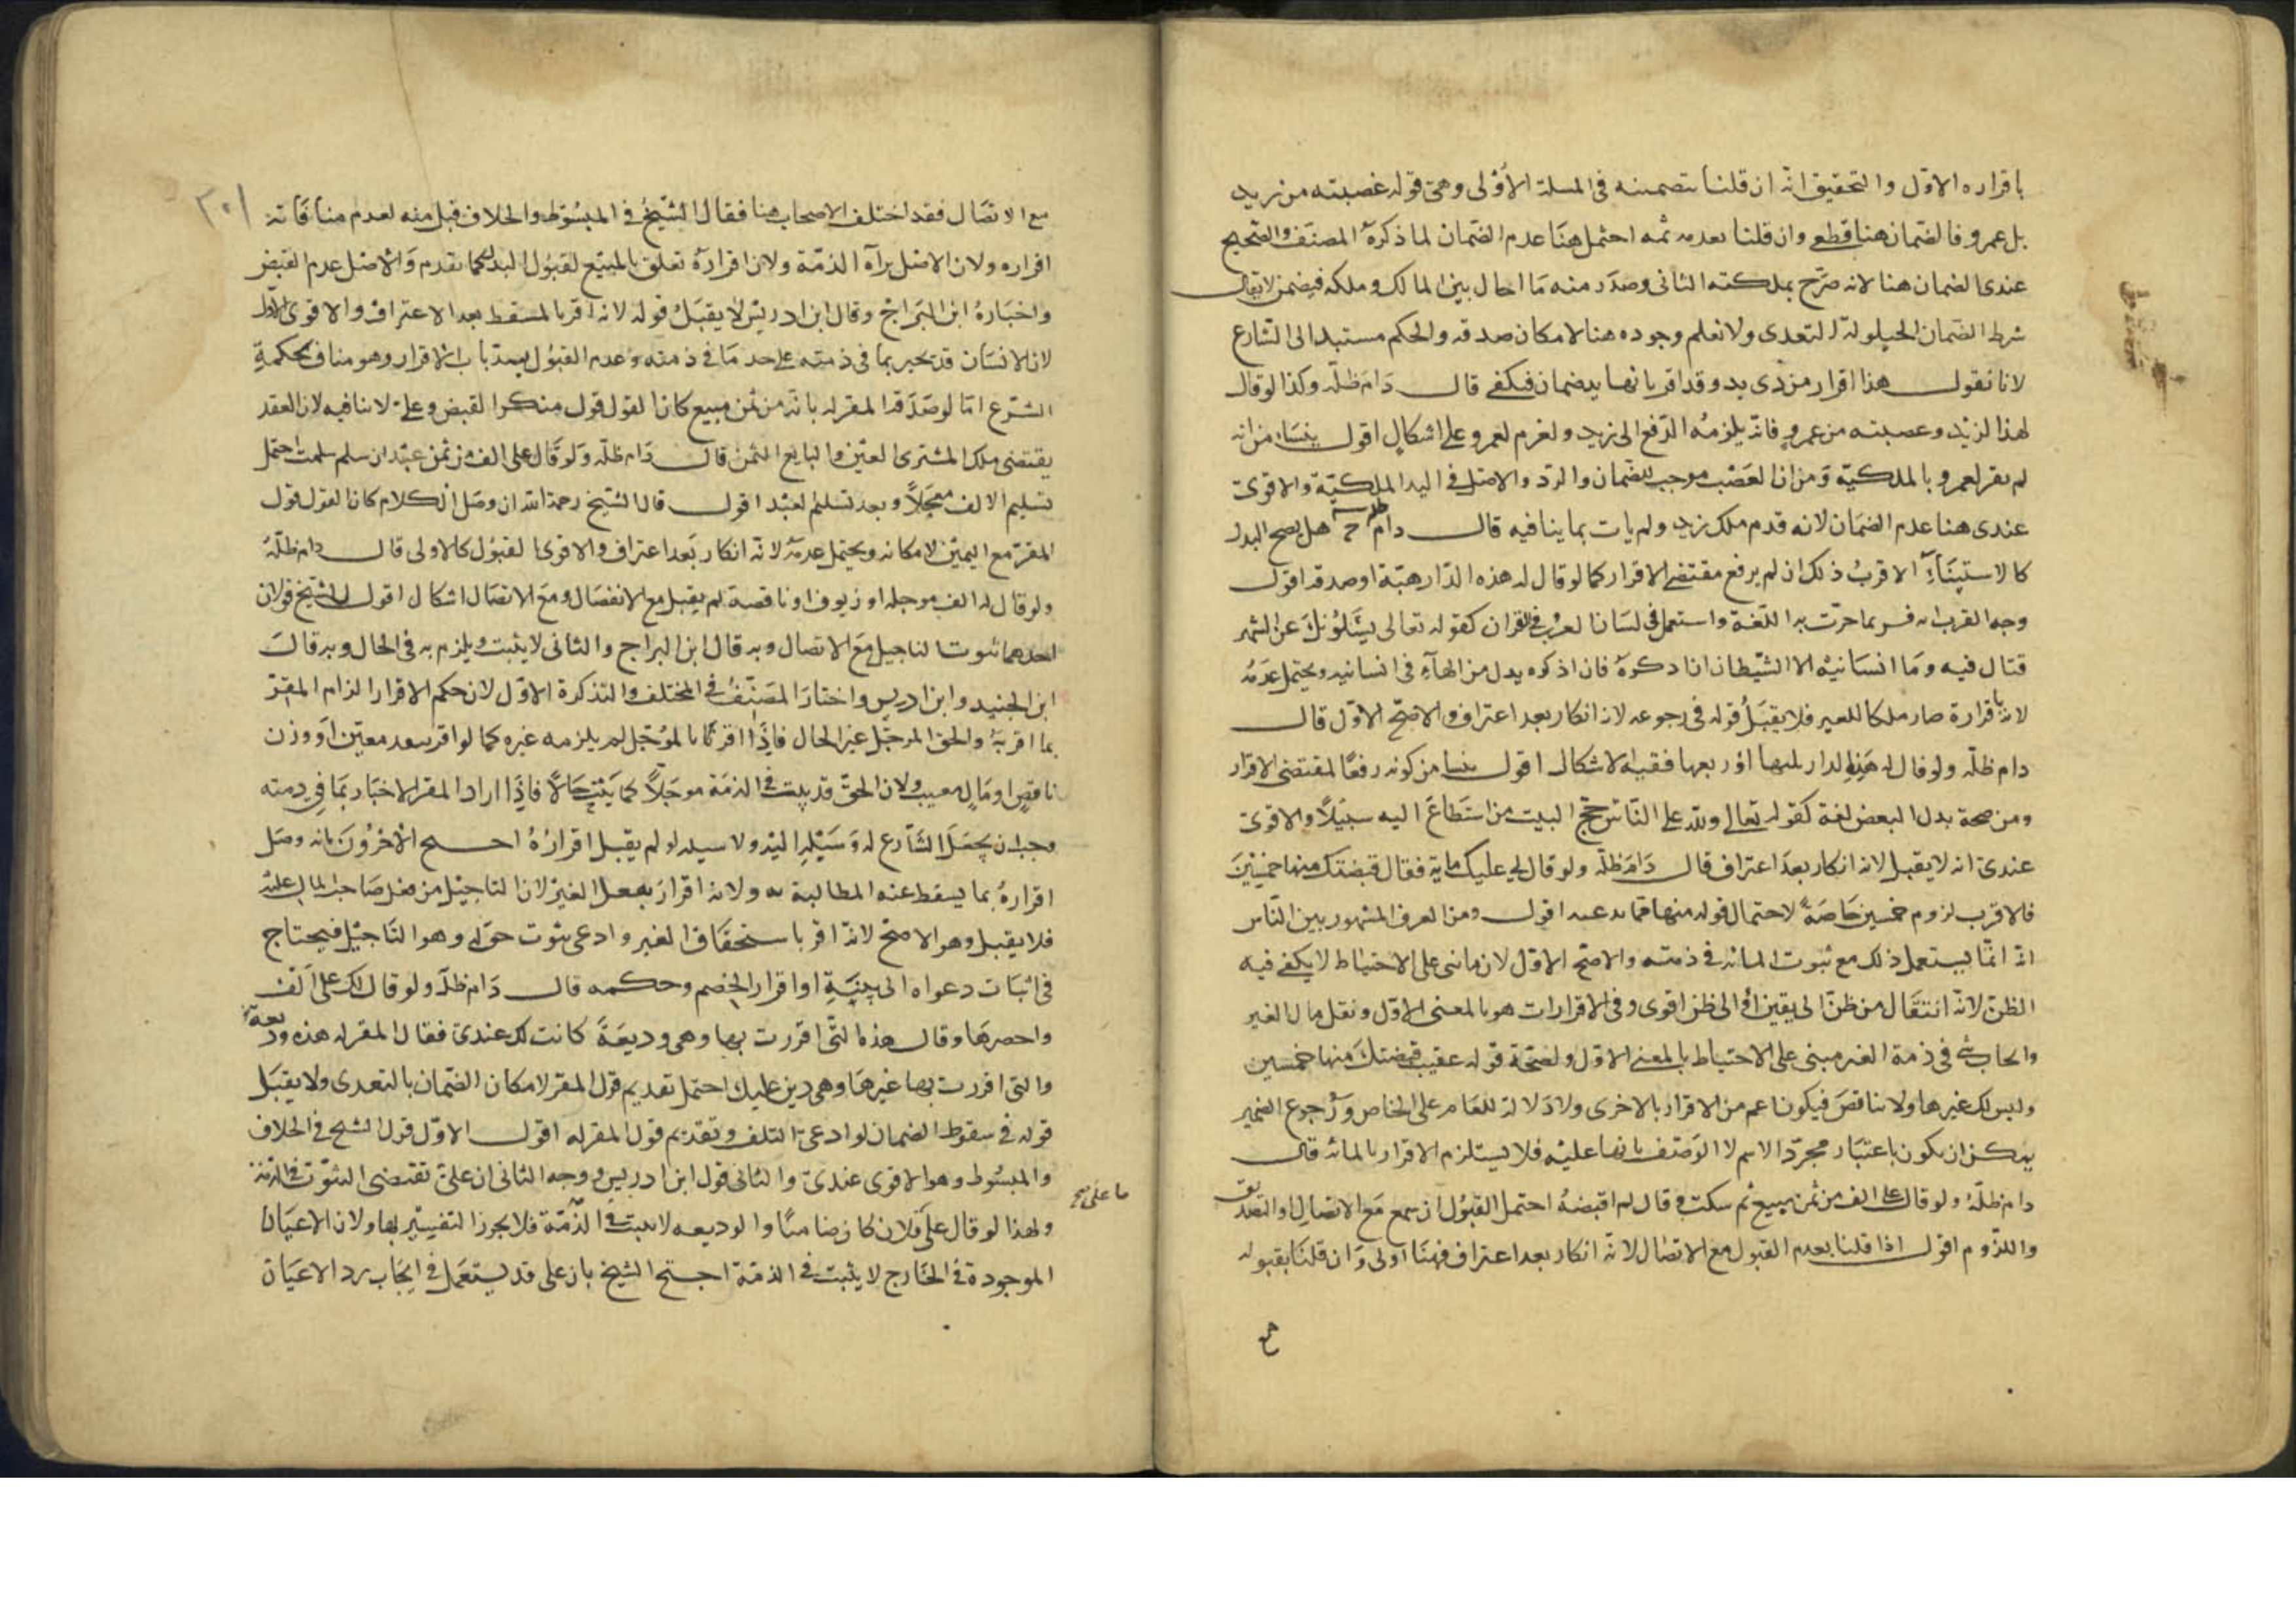 باقراره الاول والتحقيق انه ان قلنا بتضمينه في المسلة الاولى وهي قوله غصبته من زيد
بل عمرو فالضمان هنا قطعي وان قلنا بعدمه ثمه احتمل هنا عدم الضمان لما ذكره المصنف والصحيح
عندي الضمان هنا لانه صرح بملكته الثاني وصدر منه ما احال بين المالك وملكه فيضمن لا يقال
شرط الضمان الحيلولة التعدي ولا نعلم وجوده هنا لامكان صدقه والحكم مستند الى الشارع
لانا نقول هذا اقرار من ذي يد وقد اقر بانها يد ضمان فيكفي قال دام ظله وكذا لو قال
هذا لزيد وغصبته من عمرو فانه يلزمه الدفع الى زيد ولغرم لعمرو على اشكال اقول ينشا من انه
لم يقر لعمرو بالملكية ومن ان الغصب موجب للضمان والرد والاصل في اليد الملكية والاقوى
عندي هنا عدم الضمان لانه قدم ملك زيد ولم يات بما ينافيه قال دام ظله ج هل يصح البدل
كالاستثناء الاقرب ذلك ان لم يرفع مقتضى الاقرار كما لو قال له هذه الدار هبة او صدقة اقول
وجه القرب انه فسر بما جرت به اللغة واستعمل في لسان العرب في القران كقوله تعالى يسئلونك عن الشهر
قتال فيه وما انسانيه الا الشيطان ان اذكره فان اذكره بدل من الهاء في انسانيه ويحتمل عدمه
لانه باقراره صار ملكا للغير فلا يقبل قوله في رجوعه لانه انكار بعد اعتراف والاصح الاول قال
دام ظله ولو قال له هذه الدار ثلثها او ربعها ففيه الاشكال اقول ينشا من كونه رفعا لمقتضى الاقرار
ومن صحة بدل البعض لغة كقوله تعالى ولله على الناس حج البيت من استطاع اليه سبيلا والاقوى
عندي انه لا يقبل لانه انكار بعد اعتراف قال دام ظله ولو قال لي عليك ماية فقال قبضتك منها خمسين
فالاقرب لزوم خمسين خاصة لاحتمال قوله منها مما يدعيه اقول ومن العرف المشهور بين الناس
انه انما يستعمل ذلك مع ثبوت المائه في ذمته والاصح الاول لان ما بني على الاحتياط لا يكفي فيه
الظن لانه انتقال من ظن الى يقين او الى ظن اقوى وفي الاقرارات هو بالمعنى الاول ونقل مال الغير
وايجاب شي في ذمة الغير مبني على الاحتياط بالمعنى الاول ولصحة قوله عقيب قبضتك منها خمسين
وليس لك غيرها ولا يناقض فيكون اعم من الاقرار بالاخرى ولا دلالة للعام على الخاص ورجوع الضمير
يمكن ان يكون باعتبار مجرد الاسم لا الوصف بانها عليه فلا يستلزم الاقرار بالمائه قال
دام ظله ولو قال علي الف من ثمن مبيع ثم سكت وقال لم اقبضه احتمل القبول ان سمع مع الاتصال او التصديق
واللزوم اقول اذا قلنا بعدم القبول مع الاتصال لانه انكار بعد اعتراف فهنا اولى وان قلنا بقبوله
مع
٣٠١
مع الاتصال فقد اختلف الاصحاب هنا فقال الشيخ في المبسوط والخلاف قبل منه لعدم منافاته
اقراره ولان الاصل براة الذمة ولان اقراره تعلق بالمبيع لقبول البدل كما تقدم والاصل عدم القبض
واختاره ابن البراج وقال ابن ادريس لا يقبل قوله لانه اقر بالمسقط بعد الاعتراف والاقوى الاول
لان الانسان قد يخبر بما في ذمته على حد ما في ذمته وعدم القبول يسد باب الاقرار وهو مناف لحكمة
الشرع اما لو صدقه المقر له بانه من ثمن مبيع كان القول قول منكر القبض وعلي لا ينافيه لان العقد
يقتضي ملك المشتري لعين والبايع الثمن قال دام ظله ولو قال علي الف من ثمن عبد ان سلم سلمت احتمل
تسليم الالف معجلا وبعد تسليم العبد اقول قال الشيخ رحمة الله ان وصل الكلام كان القول قول
المقر مع اليمين لامكانه ويحتمل عدمه لانه انكار بعد اعتراف والاقوى القبول كالاولى قال دام ظله
ولو قال له الف موجله او زيوف او ناقصة لم يقبل مع الانفصال ومع الاتصال اشكال اقول للشيخ قولان
احدهما ثبوت التاجيل مع الاتصال وبه قال ابن البراج والثاني لا يثبت ويلزم به في الحال وبه قال
ابن الجنيد وابن ادريس واختار المصنف في المختلف والتذكرة الاول لان حكم الاقرار الزام المقر
بما اقر به والحق الموجل غير الحال فاذا اقر بالموجل لم يلزمه غيره كما لو اقر بنقد معين او وزن
ناقص او مال معيب ولان الحق قد يثبت في الذمة موجلا كما يثبت حالا فاذا اراد المقر الاخبار بما في ذمته
وجب ان يجعل الشارع له وسيلة اليه ولا سبيل لو لم يقبل اقراره احتج الاخرون بانه وصل
اقراره بما يسقط عنه المطالبة به ولانه اقرار بفعل الغير لان التاجيل من فعل صاحب المال عليه
فلا يقبل وهو الاصح لانه اقر باستحقاق الغير وادعى ثبوت حق له وهو التاجيل فيحتاج
في اثبات دعواه الى بينة او اقرار الخصم وحكمه قال دام ظله ولو قال لك علي الف
واحضرها وقال هذه التي اقررت بها وهي وديعة كانت لك عندي فقال المقر له هذه وديعة
والتي اقررت بها غيرها وهي دين عليك احتمل تقديم قول المقر لامكان الضمان بالتعدي ولا يقبل
قوله في سقوط الضمان لو ادعى التلف وتقديم قول المقر له اقول الاول قول الشيخ في الخلاف
والمبسوط وهو الاقوى عندي والثاني قول ابن ادريس ووجه الثاني ان علي تقتضي الثبوت في الذمة
ولهذا لو قال ما على فلان علي كان ضامنا والوديعه لا تثبت في الذمة فلا يجوز التفسير بها ولان الاعيان
الموجودة في الخارج لا يثبت في الذمة احتج الشيخ بان علي قد يستعمل في ايجاب رد الاعيان